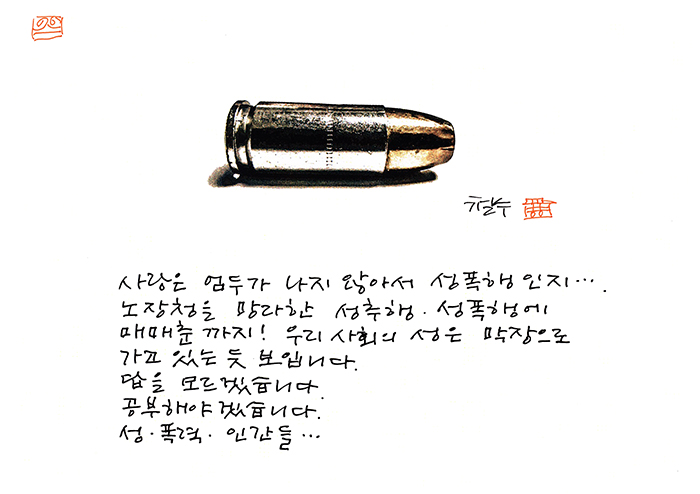 철수
사랑은 엄두가 나지 않아서 성폭행인지….
노장청을 망라한 성추행·성폭행에
매매춘까지! 우리 사회의 성은 막장으로
가고 있는 듯 보입니다.
답을 모르겠습니다.
공부해야겠습니다.
성·폭력·인간들…